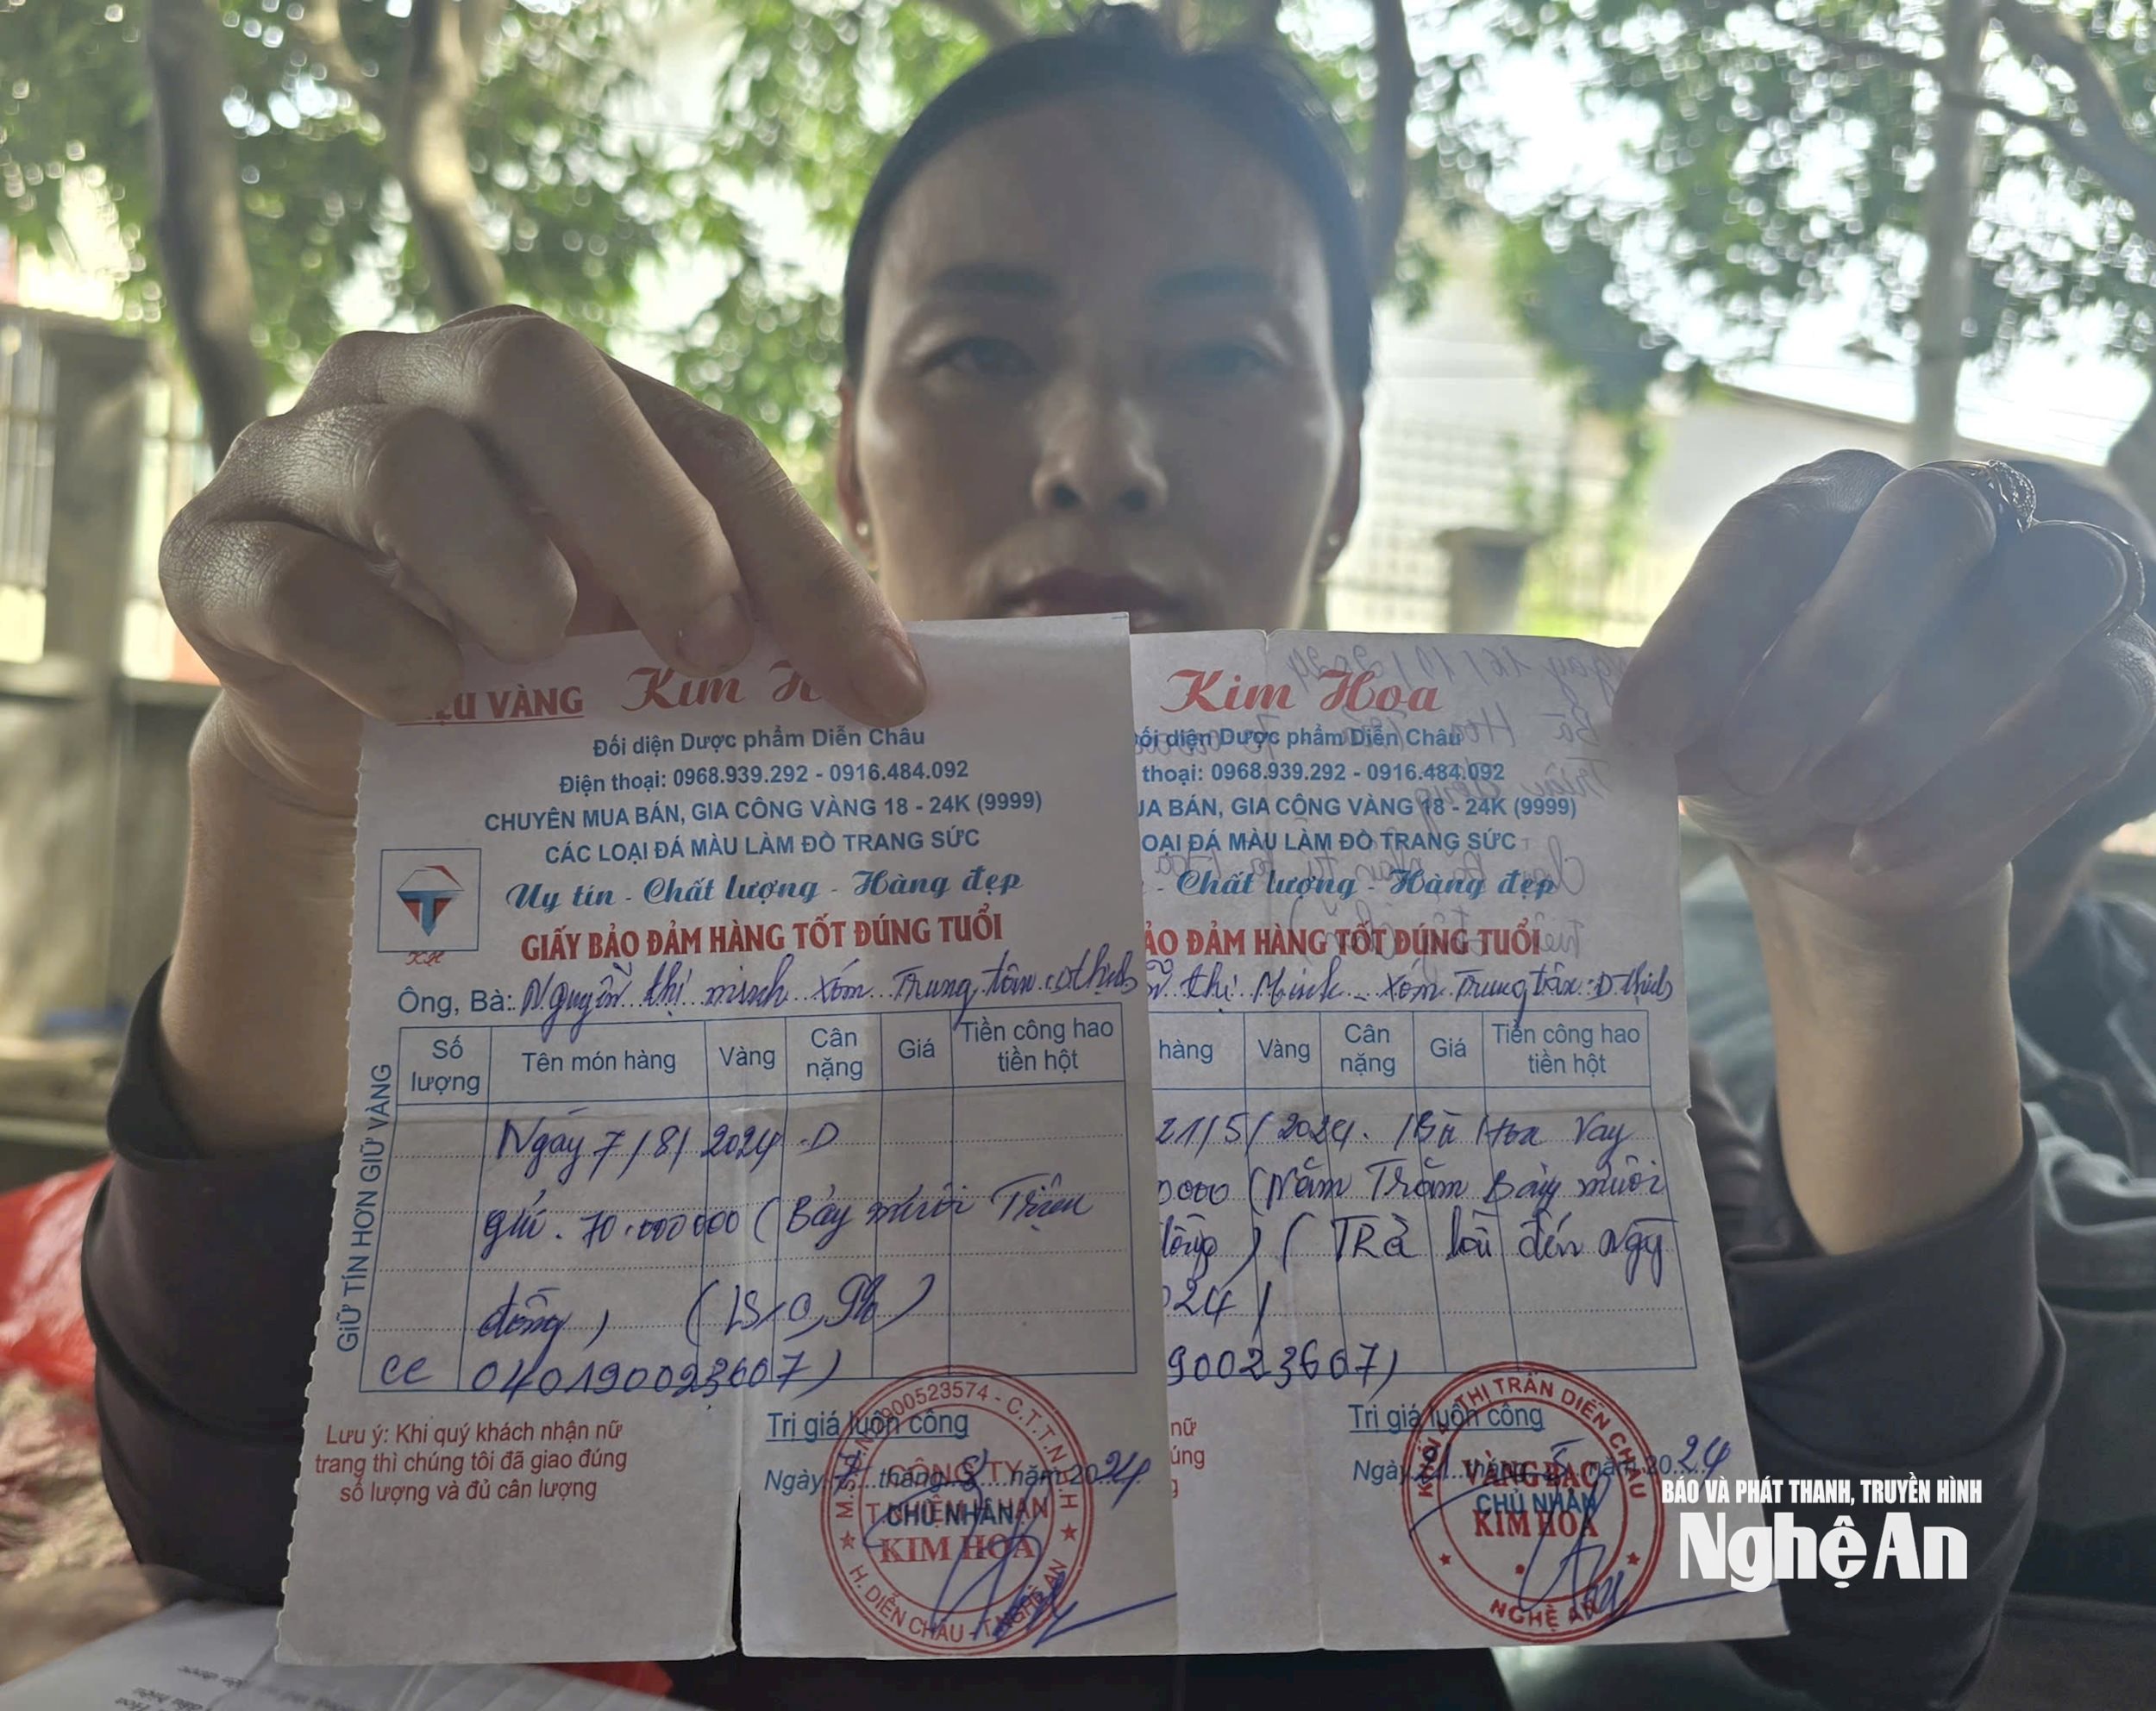 VÀNG Kim
Đối diện Dược phẩm Diễn Châu
Điện thoại: 0968.939.292 - 0916.484.092
CHUYÊN MUA BÁN, GIA CÔNG VÀNG 18 - 24K (9999)
CÁC LOẠI ĐÁ MÀU LÀM ĐỒ TRANG SỨC
Uy tín - Chất lượng - Hàng đẹp
GIẤY BẢO ĐẢM HÀNG TỐT ĐÚNG TUỔI
KH
Ông, Bà: Nguyễn thị minh xóm Trung tâm D thịnh
GIỮ TÍN HƠN GIỮ VÀNG
Số lượng Tên món hàng Vàng Cân nặng Giá Tiền công hao tiền hột
Ngày 7/8/2024 D
gửi. 70.000000 (Bảy mươi Triệu
đồng) (LS 0,9%)
CC 040190023607)
Lưu ý: Khi quý khách nhận nữ
trang thì chúng tôi đã giao đúng
số lượng và đủ cân lượng
Trị giá luôn công
Ngày 7 tháng 8 năm 2024
CHỦ NHÂN
CÔNG TY
T.NHIỆM H.HẠN
KIM HOA
H. DIỄN CHÂU - T. NGHỆ AN
Kim Hoa
ối diện Dược phẩm Diễn Châu
thoại: 0968.939.292 - 0916.484.092
UA BÁN, GIA CÔNG VÀNG 18 - 24K (9999)
OẠI ĐÁ MÀU LÀM ĐỒ TRANG SỨC
- Chất lượng - Hàng đẹp
ẢO ĐẢM HÀNG TỐT ĐÚNG TUỔI
thị Minh xóm Trung tâm D thịnh
hàng Vàng Cân nặng Giá Tiền công hao tiền hột
21/5/2024. Bà Hoa Vay
0000 (Năm Trăm Bảy mươi
đồng) (TRả lãi đến ngày
024)
90023607)
nữ
úng
Trị giá luôn công
Ngày 21 tháng 5 năm 2024
CHỦ NHÂN
KHỐI 4 - THỊ TRẤN DIỄN CHÂU
VÀNG BẠC
KIM HOA
NGHỆ AN
BÁO VÀ PHÁT THANH, TRUYỀN HÌNH
Nghệ An